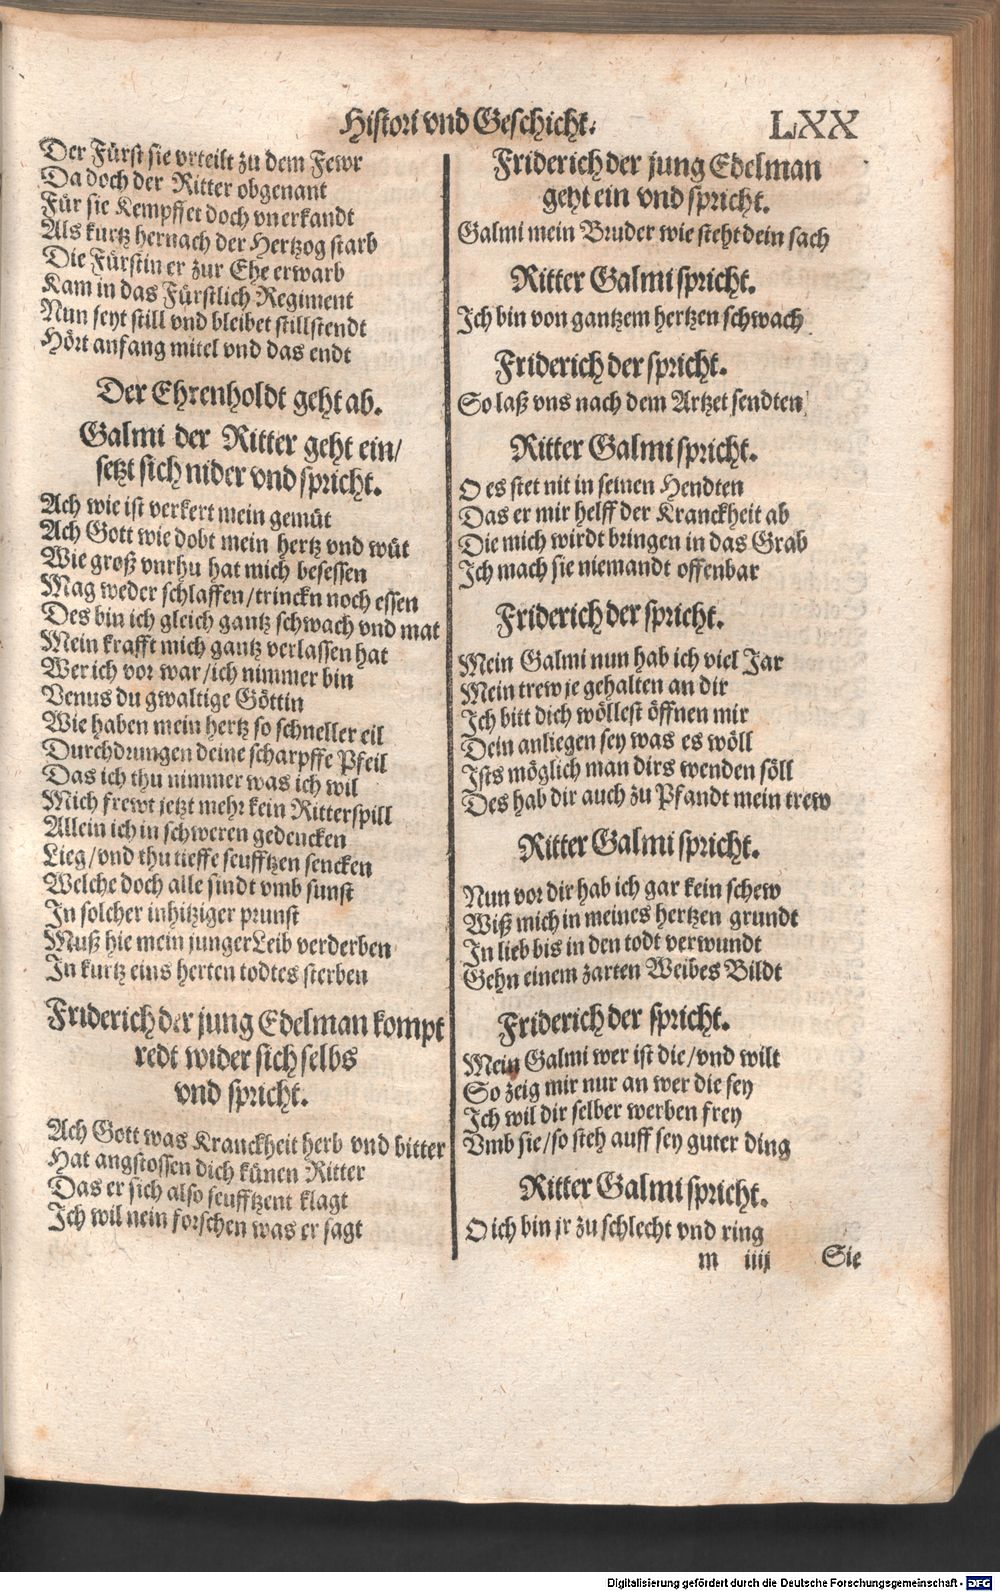 Histori vnd Geschicht. LXX
Der Fürst sie vrteilt zu dem Fewr
Da doch der Ritter obgenant
Für sie Kempffet doch vnerkandt
Als kurtz hernach der Hertzog starb
Die Fürstin er zur Ehe erwarb
Kam in das Fürstlich Regiment
Nun seyt still vnd bleibet stillstendt
Hört anfang mitel vnd das endt
Der Ehrenholdt geht ab.
Galmi der Ritter geht ein/
setzt sich nider vnd spricht.
Ach wie ist verkert mein gemüt
Ach Gott wie dobt mein hertz vnd wüt
Wie groß vnrhu hat mich besessen
Mag weder schlaffen/trinckn noch essen
Des bin ich gleich gantz schwach vnd mat
Mein krafft mich gantz verlassen hat
Wer ich vor war/ich nimmer bin
Venus du gwaltige Göttin
Wie haben mein hertz so schneller eil
Durchdrungen deine scharpffe Pfeil
Das ich thu nimmer was ich wil
Mich frewt jetzt mehr kein Ritterspill
Allein ich in schweren gedencken
Lieg/vnd thu tieffe seufftzen sencken
Welche doch alle sindt vmb sunst
In solcher inhitziger prunst
Muß hie mein junger Leib verderben
In kurtz eins herten todtes sterben
Friderich der jung Edelman kompt
redt wider sich selbs
vnd spricht.
Ach Gott was Kranckheit herb vnd bitter
Hat angstossen dich künen Ritter
Das er sich also seufftzent klagt
Ich wil nein forschen was er sagt
Friderich der jung Edelman
geht ein vnd spricht.
Galmi mein Bruder wie steht dein sach
Ritter Galmi spricht.
Ich bin von gantzem hertzen schwach
Friderich der spricht.
So laß vns nach dem Artzet sendten
Ritter Galmi spricht.
O es stet nit in seinen Hendten
Das er mir helff der Kranckheit ab
Die mich wirdt bringen in das Grab
Ich mach sie niemandt offenbar
Friderich der spricht.
Mein Galmi nun hab ich viel Jar
Mein trew je gehalten an dir
Ich bitt dich wöllest öffnen mir
Dein anliegen sey was es wöll
Ists möglich man dirs wenden söll
Des hab dir auch zu Pfandt mein trew
Ritter Galmi spricht.
Nun vor dir hab ich gar kein schew
Wiß mich in meines hertzen grundt
In lieb bis in den todt verwundt
Gehn einem zarten Weibes Bildt
Friderich der spricht.
Mein Galmi wer ist die/vnd wilt
So zeig mir nur an wer die sey
Ich wil dir selber werben frey
Vmb sie/so steh auff sey guter ding
Ritter Galmi spricht.
O ich bin jr zu schlecht vnd ring
m iiij Sie
Digitalisierung gefördert durch die Deutsche Forschungsgemeinschaft - DFG